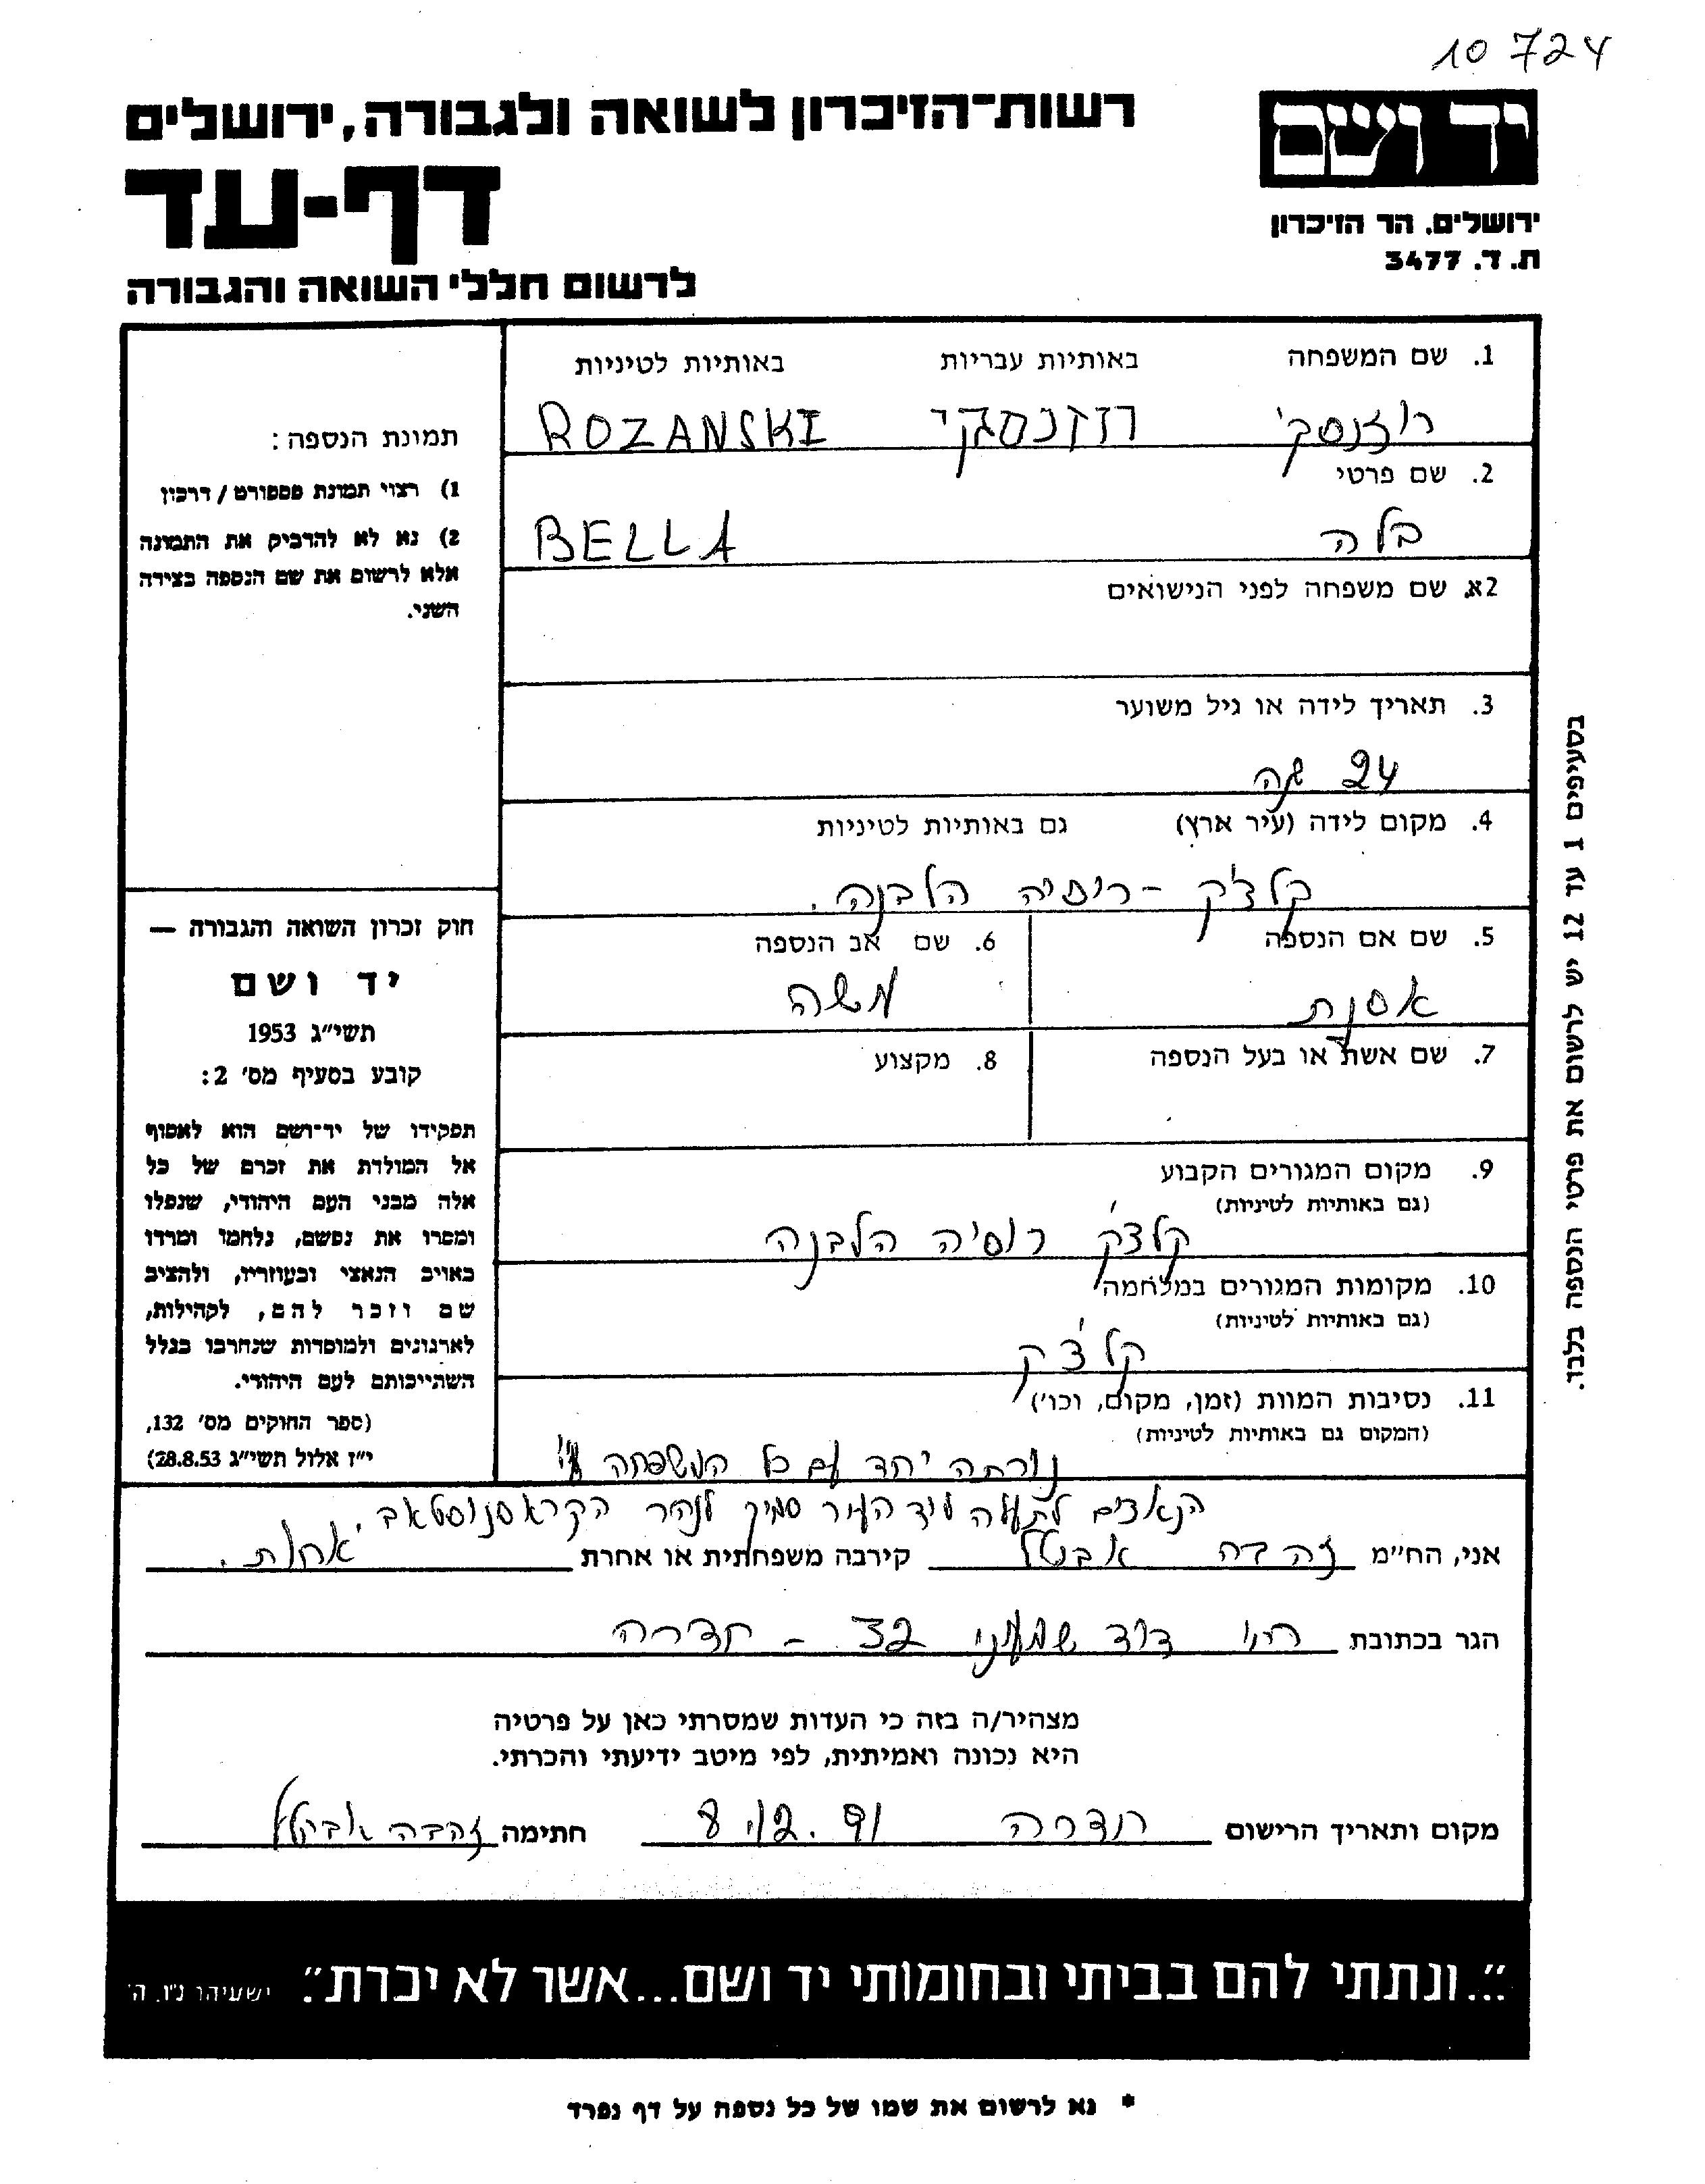 10 724
רשות־הזיכרון לשואה ולגבורה, ירושלים
יד ושם
דף-עד
ירושלים. הר הזיכרון
ת. ד. 3477
לרשום חללי השואה והגבורה
1. שם המשפחה באותיות עבריות באותיות לטיניות
רוזנסקי רוזנסקי ROZANSKI
2. שם פרטי
בלה BELLA
2א. שם משפחה לפני הנישואים
3. תאריך לידה או גיל משוער
24 שנה
4. מקום לידה (עיר ארץ) גם באותיות לטיניות
קלצ'ק - רוסיה הלבנה.
5. שם אם הנספה 6. שם אב הנספה
אסנת משה
7. שם אשת או בעל הנספה 8. מקצוע
9. מקום המגורים הקבוע
(גם באותיות לטיניות)
קלצק' רוסיה הלבנה
10. מקומות המגורים במלחמה
(גם באותיות לטיניות)
קלצ'ק
11. נסיבות המוות (זמן, מקום, וכו')
(המקום גם באותיות לטיניות)
נורתה יחד עם כל המשפחה ע"י
הנאצים לתעלה ליד העיר סמוך לנהר הקראסנוסטאב.
תמונת הנספה:
1) רצוי תמונת פספורט / דרכון
2) נא לא להדביק את התמונה
אלא לרשום את שם הנספה בצידה
השני.
חוק זכרון השואה והגבורה —
יד ושם
תשי״ג 1953
קובע בסעיף מס' 2:
תפקידו של יד־ושם הוא לאסוף
אל המולדת את זכרם של כל
אלה מבני העם היהודי, שנפלו
ומסרו את נפשם, נלחמו ומרדו
באויב הנאצי ובעוזריו, ולהציב
שם וזכר להם, לקהילות,
לארגונים ולמוסדות שנחרבו בגלל
השתייכותם לעם היהודי.
(ספר החוקים מס' 132,
י״ז אלול תשי״ג 28.8.53)
בסעיפים 1 עד 12 יש לרשום את פרטי הנספה בלבד.
אני, הח״מ זהבה קירבה משפחתית או אחרת אחות.
הגר בכתובת רח' דוד שמעוני 32 - חדרה
מצהיר/ה בזה כי העדות שמסרתי כאן על פרטיה
היא נכונה ואמיתית, לפי מיטב ידיעתי והכרתי.
מקום ותאריך הרישום חדרה 8.12.91 חתימה זהבה
״...ונתתי להם בביתי ובחומותי יד ושם...אשר לא יכרת״. ישעיהו נ״ו. ה'
* נא לרשום את שמו של כל נספה על דף נפרד